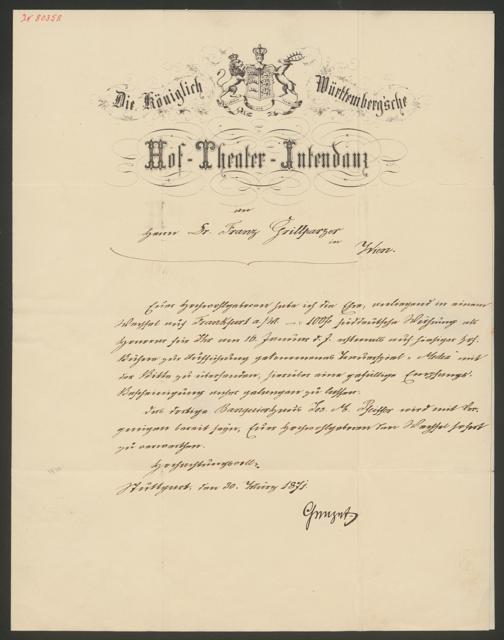 IN 80358
Die Königlich Württemberg'sche
Hof-Theater-Intendanz
an
Herrn Dr. Franz Grillparzer
in
Wien.
Euer Hochwohlgeboren habe ich die Ehre, anliegend in einem
Wechsel auf Frankfurt a/M. 100 fl süddeutsche Währung als
Honorar für Ihr am 16. Januar d. J. erstmals auf hiesiger Hof-
Bühne zur Aufführung gekommenes Trauerspiel „Medea" mit
der Bitte zu übersenden, hierüber eine gefällige Empfangs-
Bescheinigung anher gelangen zu lassen.
Das dortige Banquierhaus Jos. M. wird mit Ver-
gnügen bereit sein, Euer Hochwohlgeboren den Wechsel sofort
zu verwerthen.
Hochachtungsvoll
Stuttgart, den 30. März 1871.